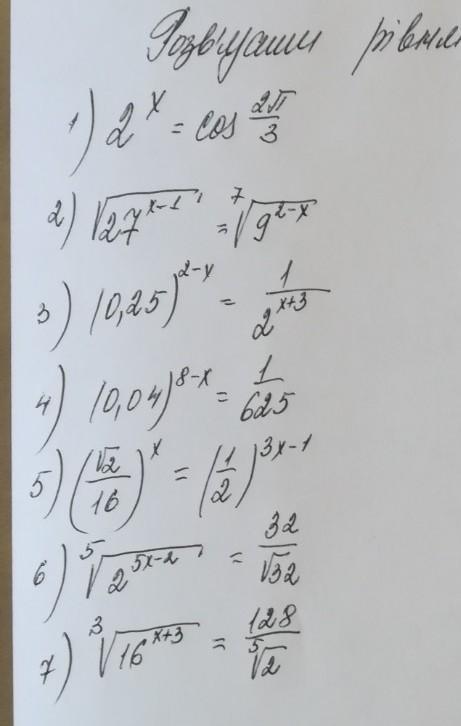 Розв'язати рівнян
1) 2^x = cos 2π/3
2) √(27^(x-1)) = ⁷√(9^(2-x))
3) (0,25)^(2-x) = 1/2^(x+3)
4) (0,04)^(8-x) = 1/625
5) (√2/16)^x = (1/2)^(3x-1)
6) ⁵√(2^(5x-2)) = 32/√32
7) ³√(16^(x+3)) = 128/⁵√2